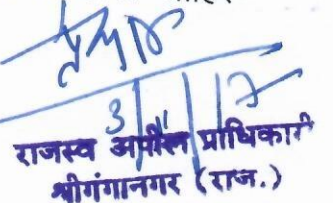 3/11/17
राजस्व अपील प्राधिकारी
श्रीगंगानगर (राज.)